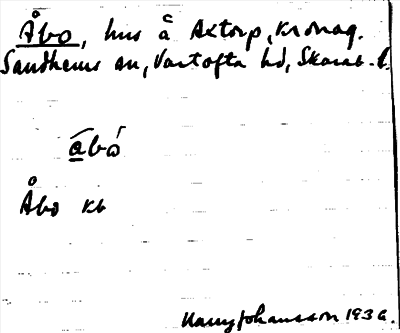 Åbo, hus å Axtorp, kronog.
Sandhems sn, Vartofta hd, Skarab. l.
a̲bó
Åbo kb
Harry Johansson 1936.